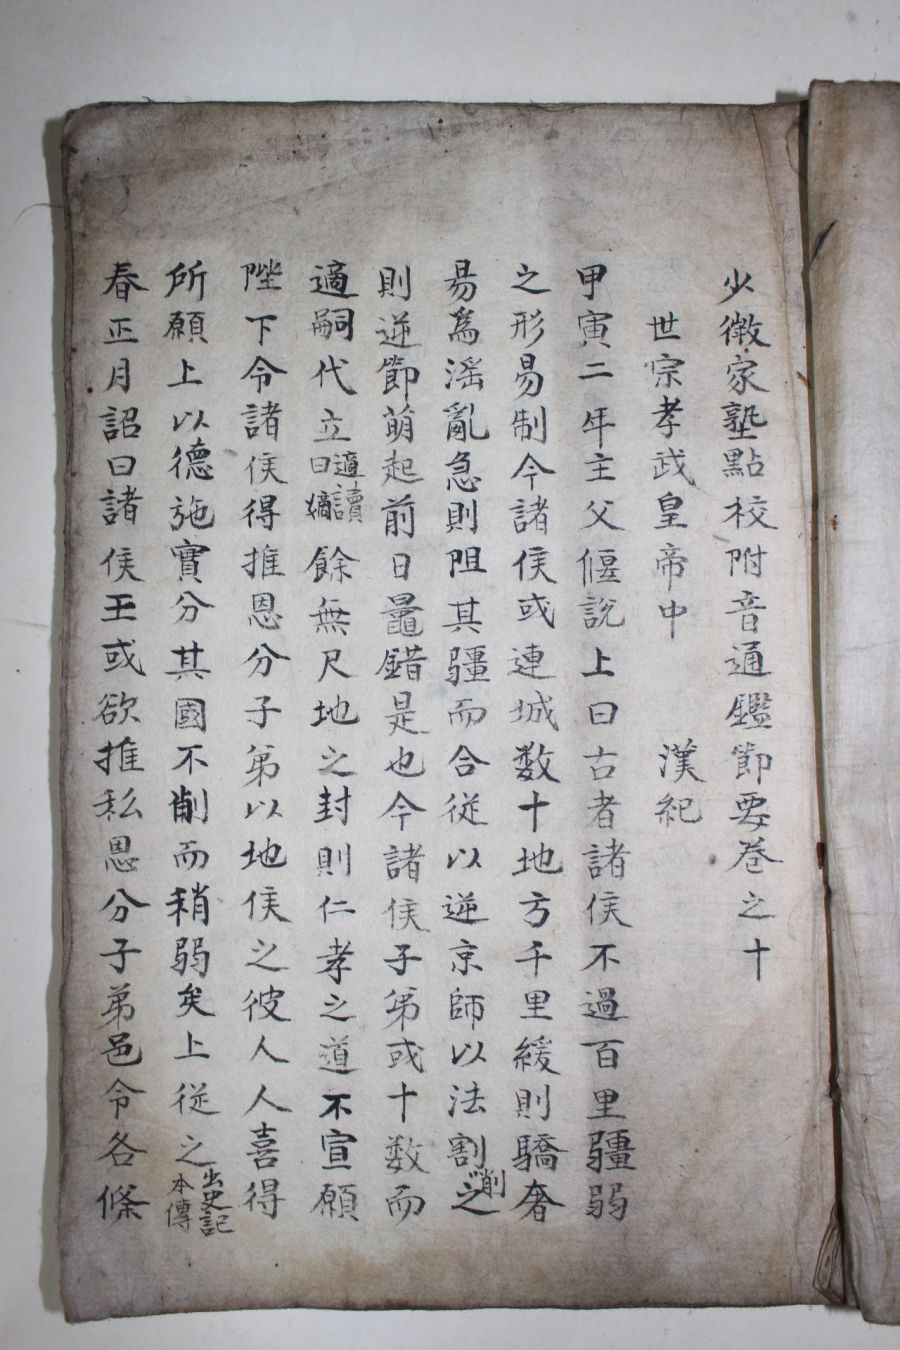 少微家塾點校附音通鑑節要卷之十
世宗孝武皇帝中 漢紀
甲寅二年主父偃說上曰古者諸侯不過百里疆弱
之形易制今諸侯或連城数十地方千里緩則驕奢
易爲滛亂急則阻其疆而合從以逆京師以法割削之
則逆節萌起前日鼂錯是也今諸侯子弟或十数而
適嗣代立適讀曰嫡餘無尺地之封則仁孝之道不宣願
陛下令諸侯得推恩分子弟以地侯之彼人人喜得
所願上以德施實分其國不削而稍弱矣上従之出史記本傳
春正月詔曰諸侯王或欲推私恩分子弟邑令各條